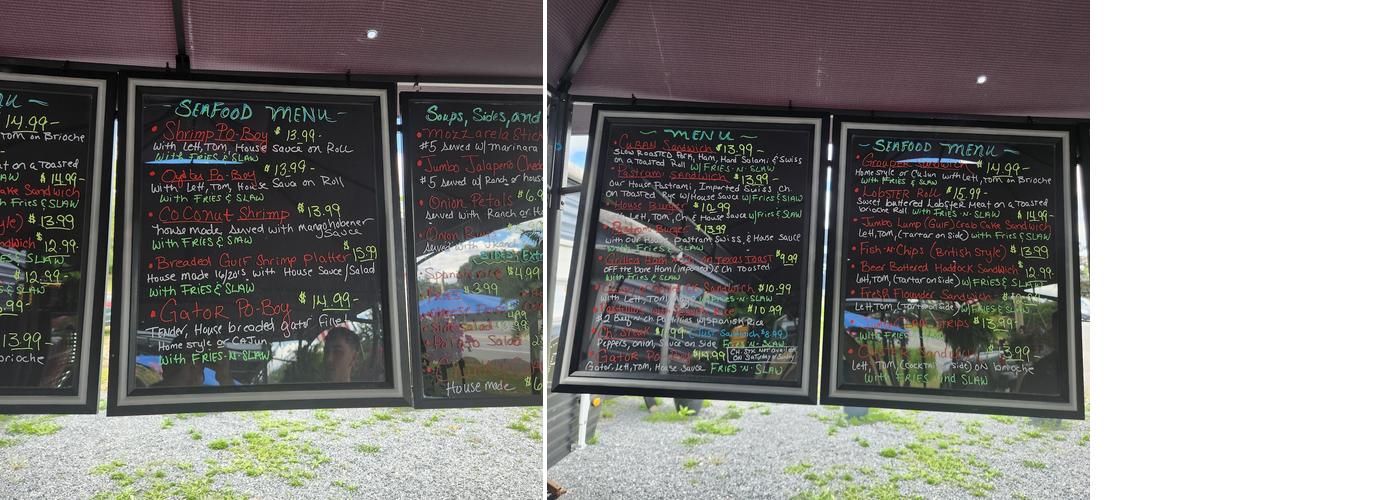 14.99-
Tom on Brioche
14.99-
$13.99
$12.99-
$12.99-
13.99
SEAFOOD MENU-
• Shrimp Po-Boy $13.99-
with Lett, Tom, House Sauce on Roll
with FRIES & SLAW
• Oyster Po-Boy $13.99-
with Lett, Tom, House Sauce on Roll
with FRIES & SLAW
• Coconut Shrimp $13.99
house made served with mangohabener Sauce
with FRIES & SLAW
• Breaded Gulf Shrimp platter 15.99
House made 16/20's with House Sauce/Salad
with FRIES & SLAW
• GaToR Po-Boy $14.99-
Tender, House breaded gator
Home style or Cajun
with FRIES-N-SLAW
Soups, Sides, and
• Mozzarela Stick
#5 served w/ marinara
• Jumbo Jalapeno Chedd
#5 served w/ Ranch or hous
• Onion Petals $6.9
Served with Ranch or H
Spanish rice $4.99
$3.99
Side Salad
Potato Salad
House made $6
- MENU -
• CUBAN SANDWICH $13.99-
Slow Roasted Pork, Ham, Hard Salami & Swiss
on a Toasted Roll w/ FRIES-N-SLAW
• Pastrami Sandwich 13.99
Our House Pastrami, Imported Swiss Ch.
on Toasted Rye w/ House Sauce w/ Fries & SLAW
• House Burger $10.99
Lett, Tom, Ch & House Sauce w/ Fries & SLAW
Burger $13.99
with our House pastrami Swiss, & House Sauce
with FRIES & SLAW
• Grilled Ham & Ch. on Texas Toast $9.99
OFF the Bone Ham (imported) & Ch Toasted
with FRIES & SLAW
Sandwich $10.99
with Lett, Tom, Mayo w/ FRIES-N-SLAW
Rice $10.99
#2 Beef-n-Ch Pastilles w/ Spanish Rice
• Ch. Steak Just Sandwich $8.99
Peppers, onion, Sauce on side Fries N. SLAW
• Gator Po-Boy $14.99
Gator, Lett, Tom, House Sauce FRIES-N-SLAW
- SEAFOOD MENU -
• Grouper Sandwich $14.99-
Home style or Cajun with Lett, Tom on Brioche
with FRIES & SLAW
• LobsTER Roll $15.99-
Sweet buttered Lobster Meat on a Toasted
brioche Roll with FRIES-N-SLAW $14.99-
• Jumbo Lump (Gulf) Crab Cake Sandwich
Lett, Tom, (Tartar on side) with Fries & SLAW
• Fish-N-Chips (British Style) $13.99
• Beer Battered Haddock Sandwich $12.99-
Lett, Tom, (Tartar on side) with FRIES & SLAW
• Fresh Flounder Sandwich
Lett, Tom, (Tartar on side) with FRIES & SLAW
STRIPS $13.99-
with FRIES
• OYSTER Sandwich 13.99
Lett, Tom, (Cocktail on side) on brioche
with FRIES and SLAW